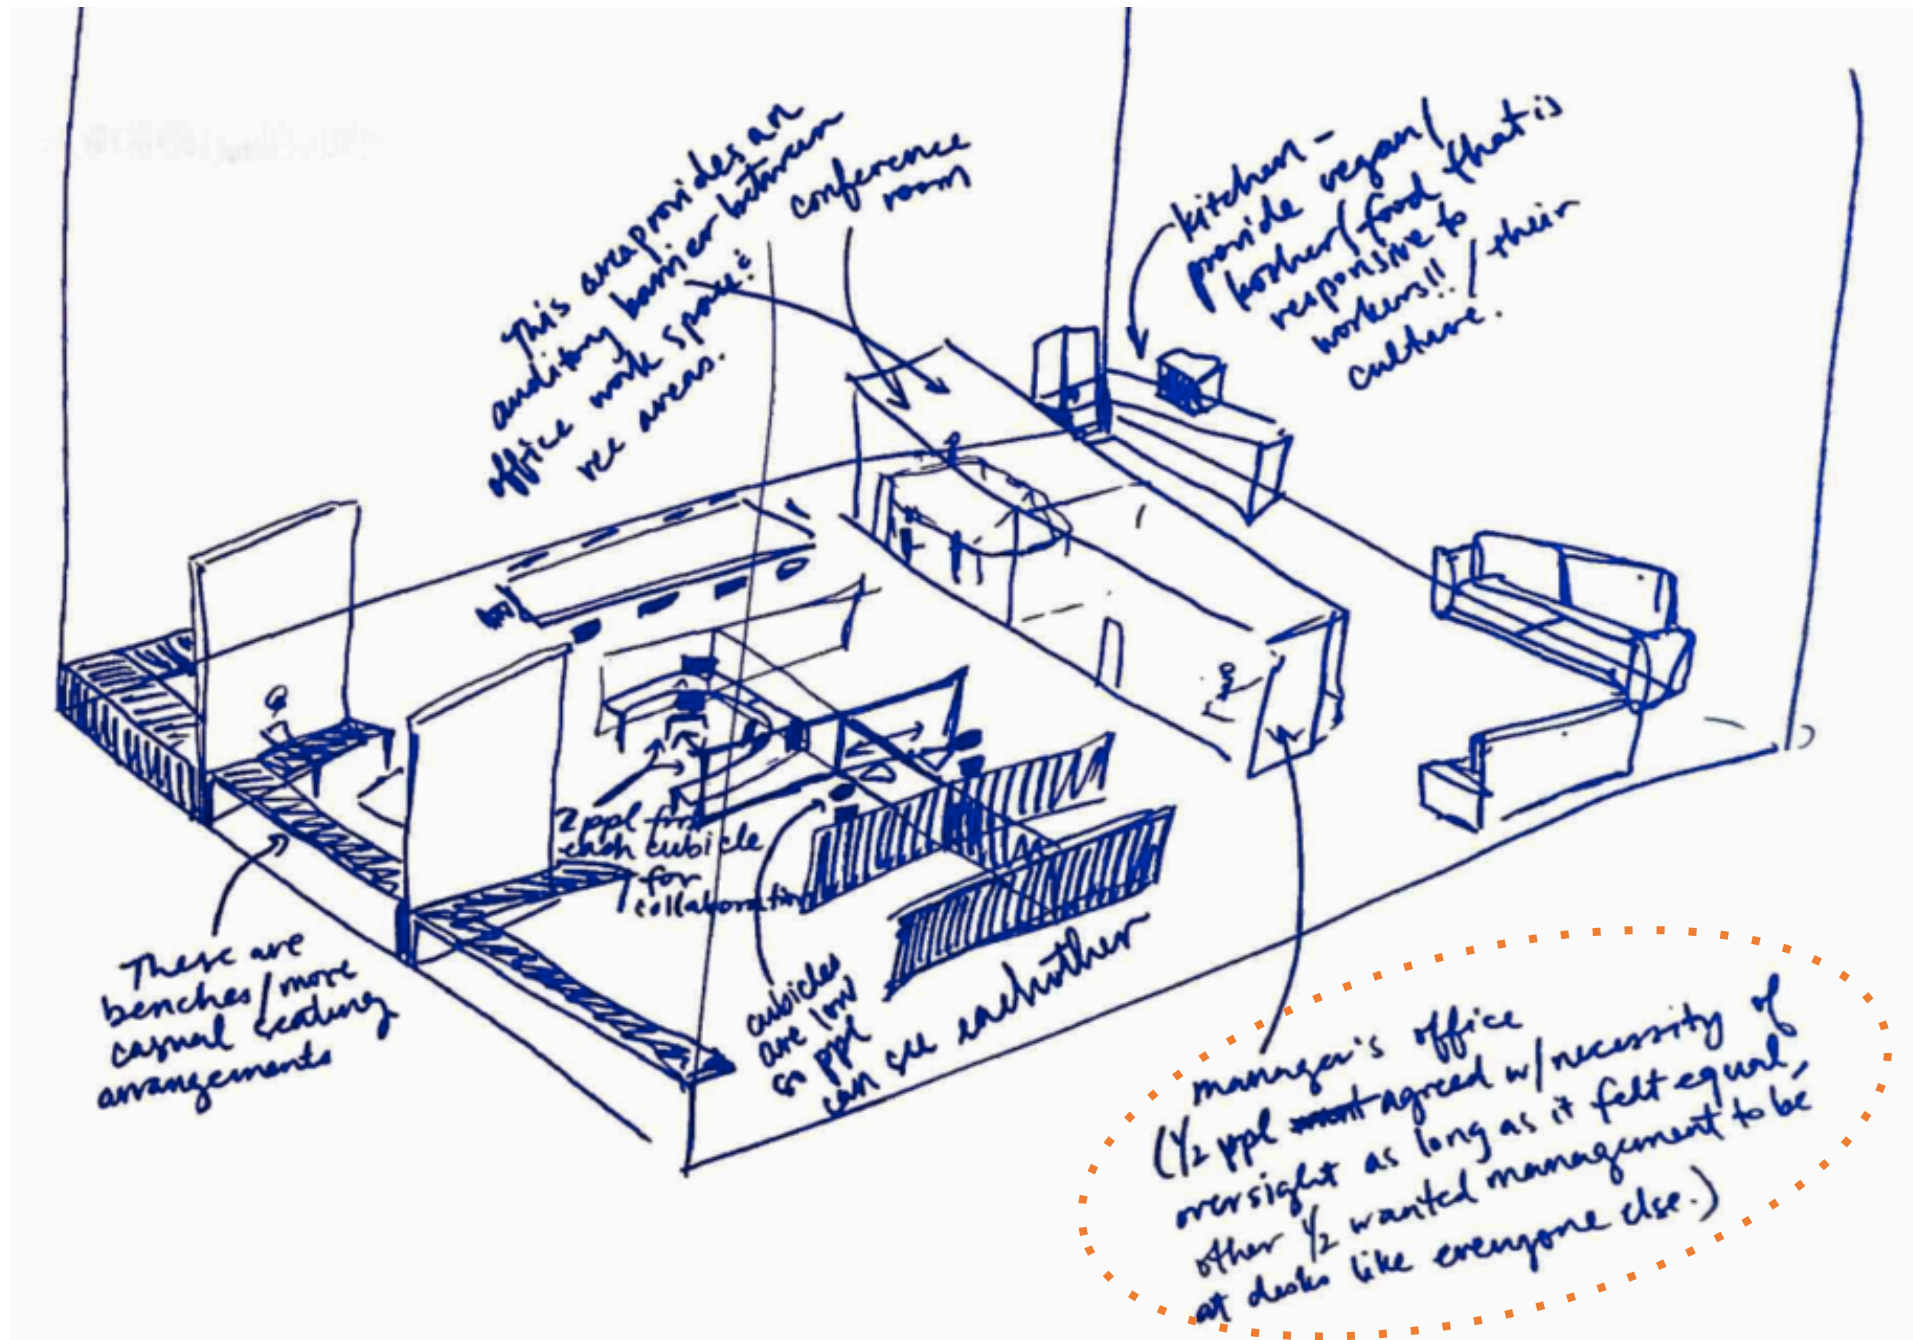 This area provides an
auditory barrier between
office work space :
rec areas.
conference
room
kitchen -
provide vegan/
kosher/food that is
responsive to
workers!! / their
culture.
2 ppl from
each cubicle
for
collaboration
These are
benches/more
casual seating
arrangements
cubicles
are low
so ppl
can see eachother
manager's office
(1/2 ppl agreed w/necessity of
oversight as long as it felt equal,
other 1/2 wanted management to be
at desks like everyone else.)